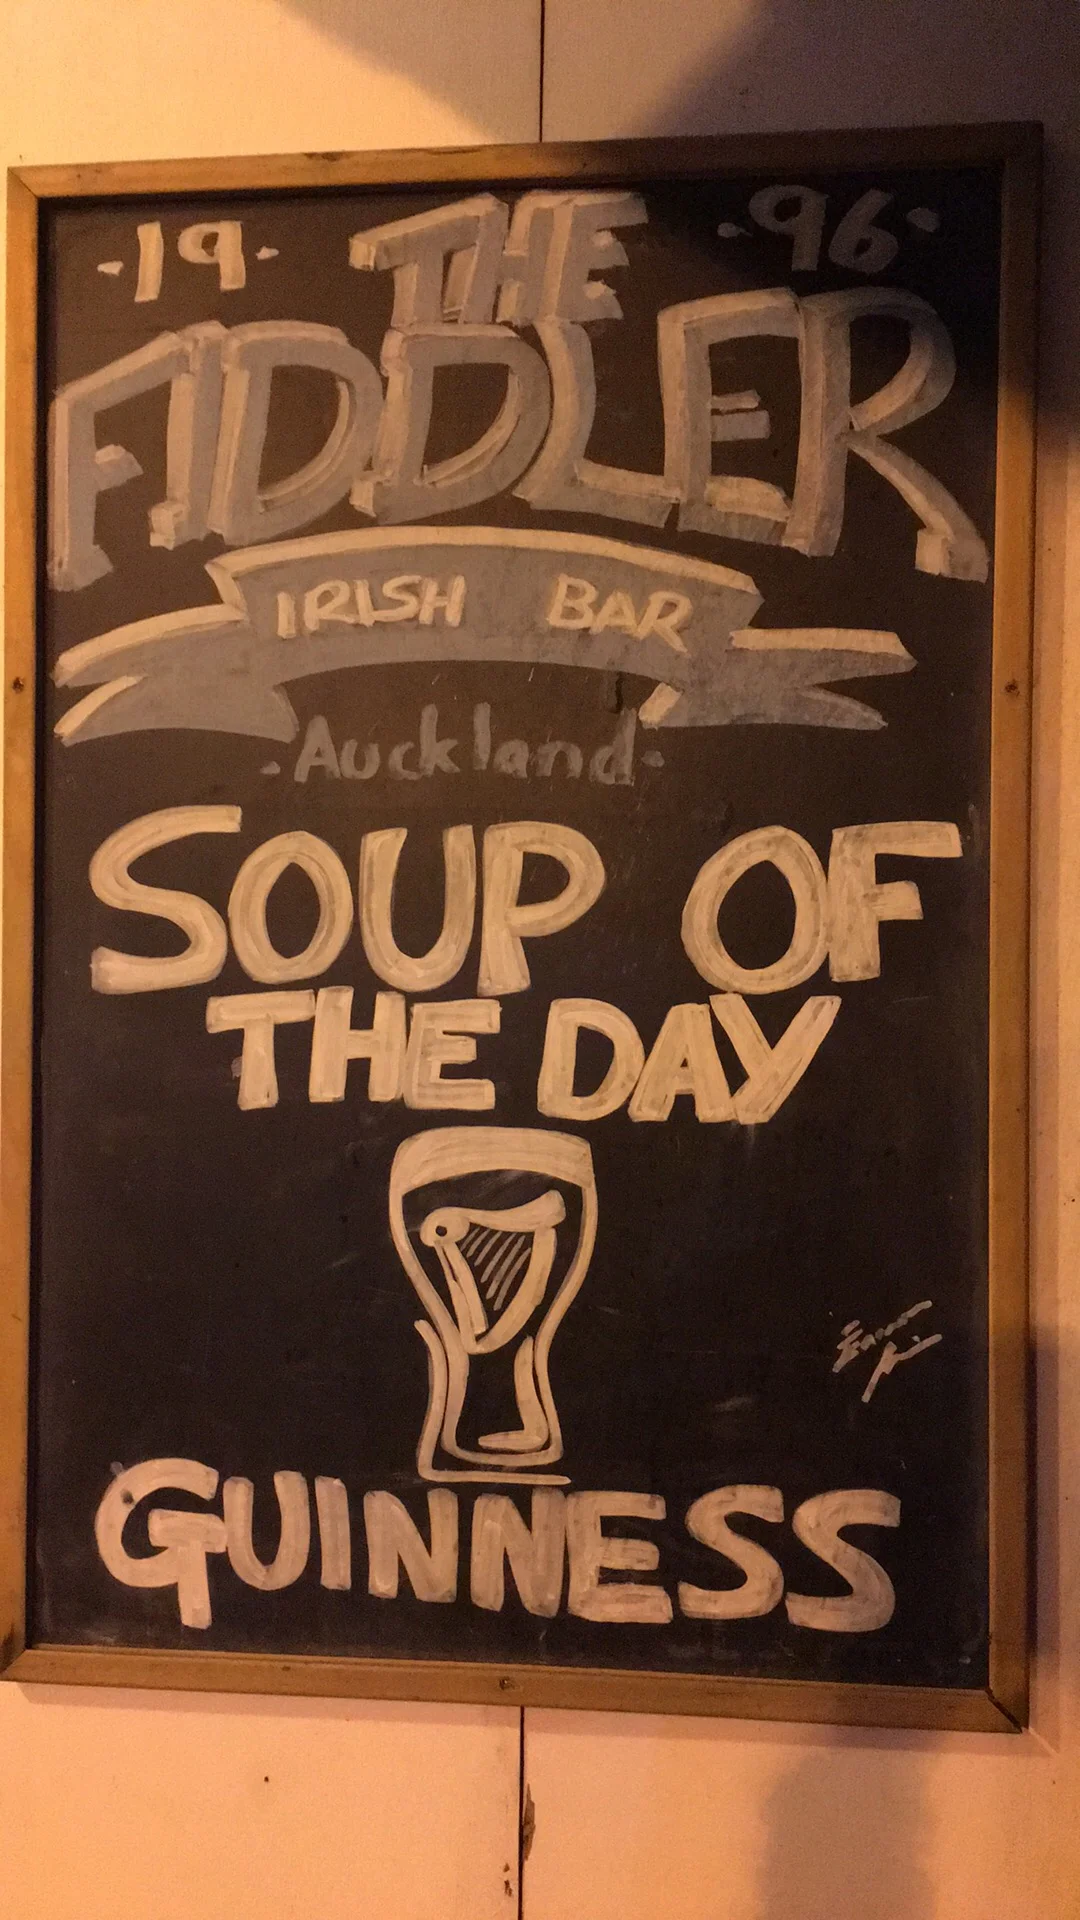 ·19· THE ·96·
FIDDLER
IRISH BAR
·Auckland·
SOUP OF
THE DAY
GUINNESS